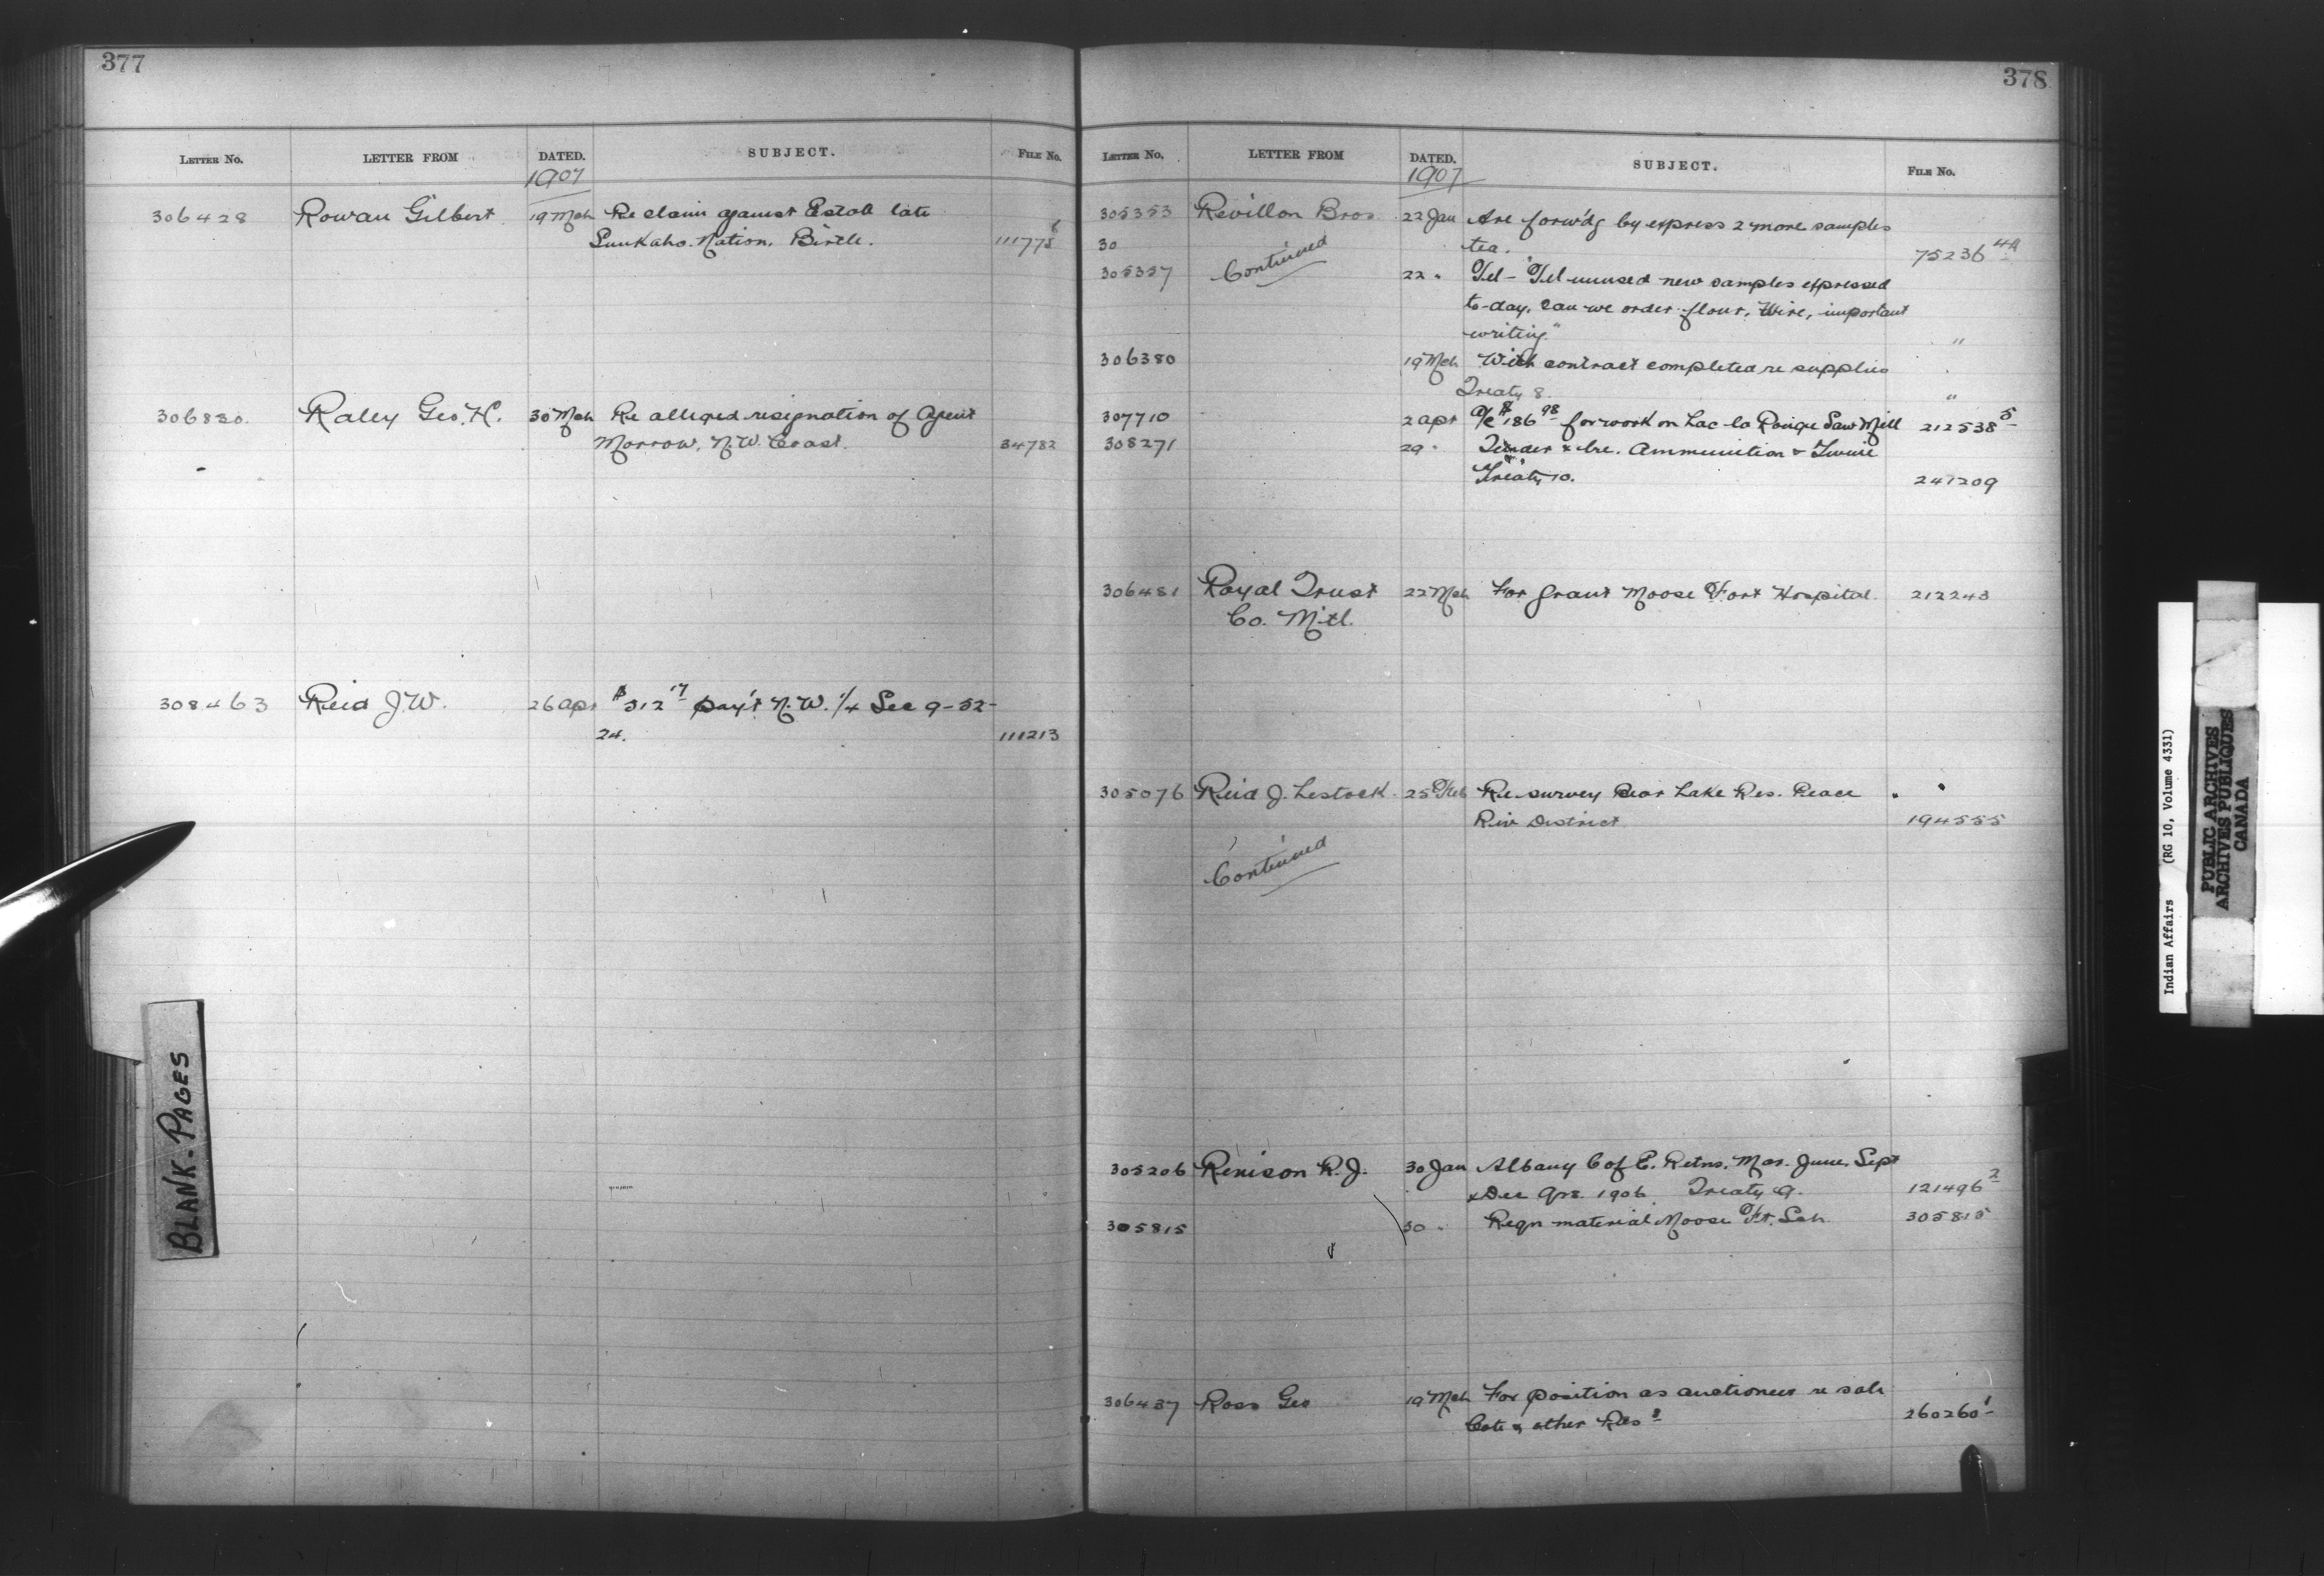 377
LETTER No. LETTER FROM DATED. SUBJECT. FILE No.
1907
306428 Rowan Gilbert 19 Mch Re claim against Estate late
Sunkaho. Nation. Birtle. 111775 6
306830 Raley Geo. H. 30 Mch Re alleged resignation of Agent
Morrow, N.W. Coast. 34782
308463 Reid J.W. 26 Apr $312 17 pay't N.W. 1/4 Sec 9-52-
24. 111213
378
LETTER No. LETTER FROM DATED. SUBJECT. FILE No.
1907
305353 Revillon Bros 22 Jan Are forw'dg by express 2 more samples
30 tea. 75236 4A
Continued
305357 22 " Tel - "Tel unused new samples expressed
to-day. Can we order flour. Wire, important
writing" "
306380 19 Mch With contract completed re supplies
Treaty 8. "
307710 2 Apr A/c $186 98 for work on Lac la Ronge Saw Mill 212538 5
308271 29 " Tender & bre. Ammunition & Twine
Treaty 10. 247209
306481 Royal Trust 22 Mch For grant Moose Fort Hospital. 212243
Co. M'tl.
305076 Reid J. Lestock 25 Feb Re survey Bear Lake Res. Peace
Riv District 194555
Continued
305206 Renison R.J. 30 Jan Albany C of E. Retns. Mar. June, Sept
& Dec Qrs. 1906. Treaty 9. 121496 2
305815 30 " Reqn material Moose Ft. Sch. 305815
306437 Ross Geo 19 Mch For position as auctioneer re sale
Cote & other Res s 260260 1
BLANK-PAGES
Indian Affairs (RG 10, Volume 4331)
PUBLIC ARCHIVES
ARCHIVES PUBLIQUES
CANADA